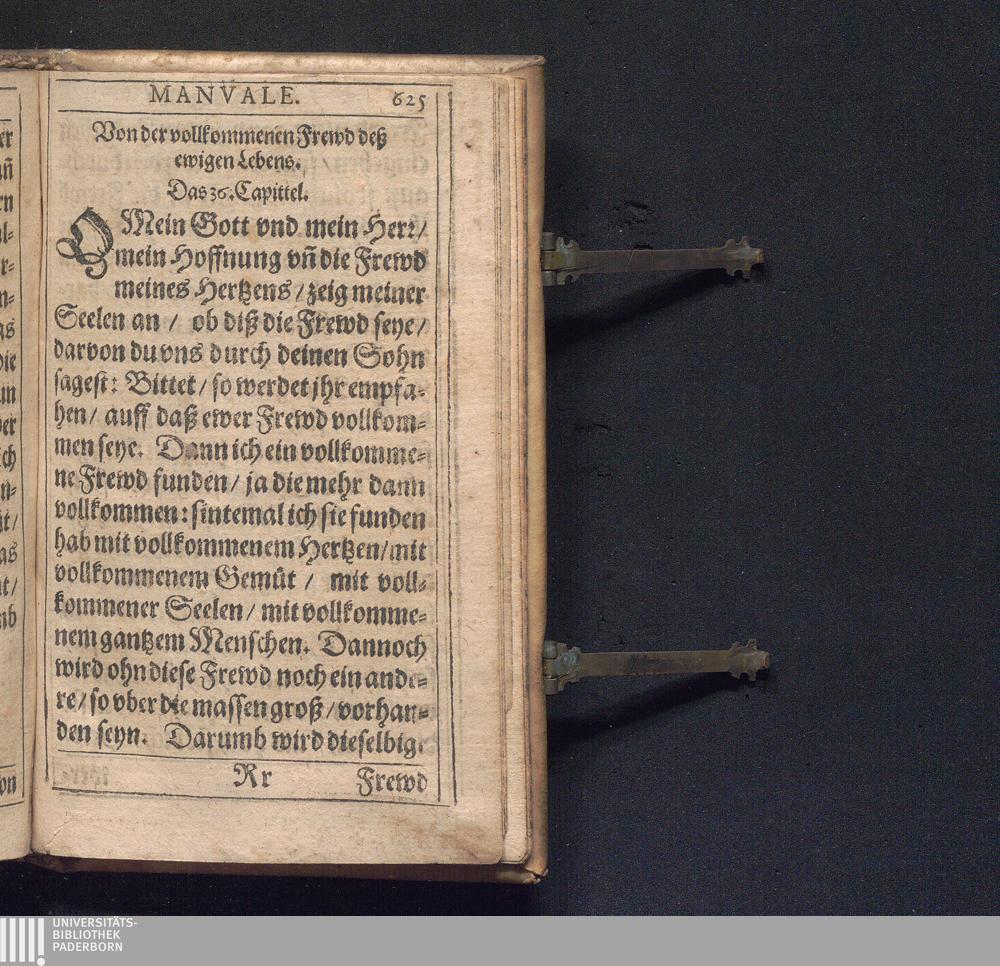 MANVALE. 625
Von der vollkommenen Frewd deß
ewigen Lebens.
Das 36. Capittel.
O Mein Gott vnd mein Herr/
mein Hoffnung vñ die Frewd
meines Hertzens / zeig meiner
Seelen an / ob diß die Frewd seye/
darvon du vns durch deinen Sohn
sagest: Bittet / so werdet jhr empfa-
hen / auff daß ewer Frewd vollkom-
men seye. Dann ich ein vollkomme-
ne Frewd funden / ja die mehr dann
vollkommen: sintemal ich sie funden
hab mit vollkommenem Hertzen/mit
vollkommenem Gemüt / mit voll-
kommener Seelen / mit vollkomme-
nem gantzem Menschen. Dannoch
wird ohn diese Frewd noch ein ande-
re / so vber die massen groß / vorhan-
den seyn. Darumb wird dieselbige
Rr Frewd
er
añ
rn
al-
r-
n-
gs
die
un
ver
ich
n-
it/
as
nt/
mb
on
UNIVERSITÄTS-
BIBLIOTHEK
PADERBORN